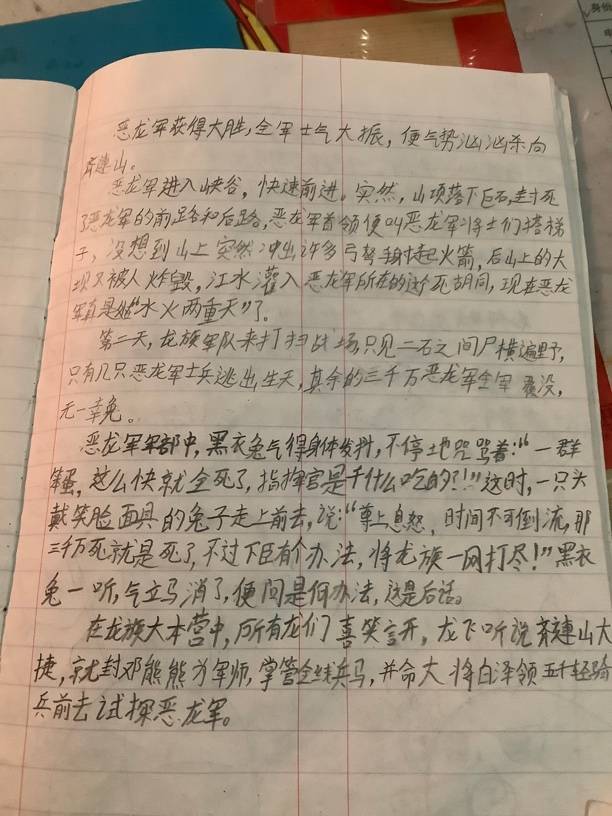 恶龙军获得大胜,全军士气大振,便气势汹汹杀向
连山。
恶龙军进入峡谷,快速前进。突然,山顶落下巨石,封死
了恶龙军的前路和后路,恶龙军首领便叫恶龙军将士们搭梯
子,没想到山上突然冲出许多弓弩手射起火箭,后山上的大
坝又被人炸毁,江水灌入恶龙军所在的这个死胡同,现在恶龙
军真是如“水火两重天”了。
第二天,龙族军队来打扫战场,只见二石之间尸横遍野,
只有几只恶龙军士兵逃出生天,其余的三千万恶龙军全军覆没,
无一幸免。
恶龙军军部中,黑衣兔气得身体发抖,不停地咒骂着:“一群
笨蛋,这么快就全死了,指挥官是干什么吃的?!”这时,一只头
戴笑脸面具的兔子走上前去,说:“尊上息怒,时间不可倒流,那
三千万死就是死了,不过下臣有个办法,将龙族一网打尽!”黑衣
兔一听,气立马消了,便问是何办法,这是后话。
在龙族大本营中,所有龙们喜笑言开,龙飞听说连山大
捷,就封邓熊熊为军师,掌管全线兵马,并命大将白泽领五千轻骑
兵前去试探恶龙军。